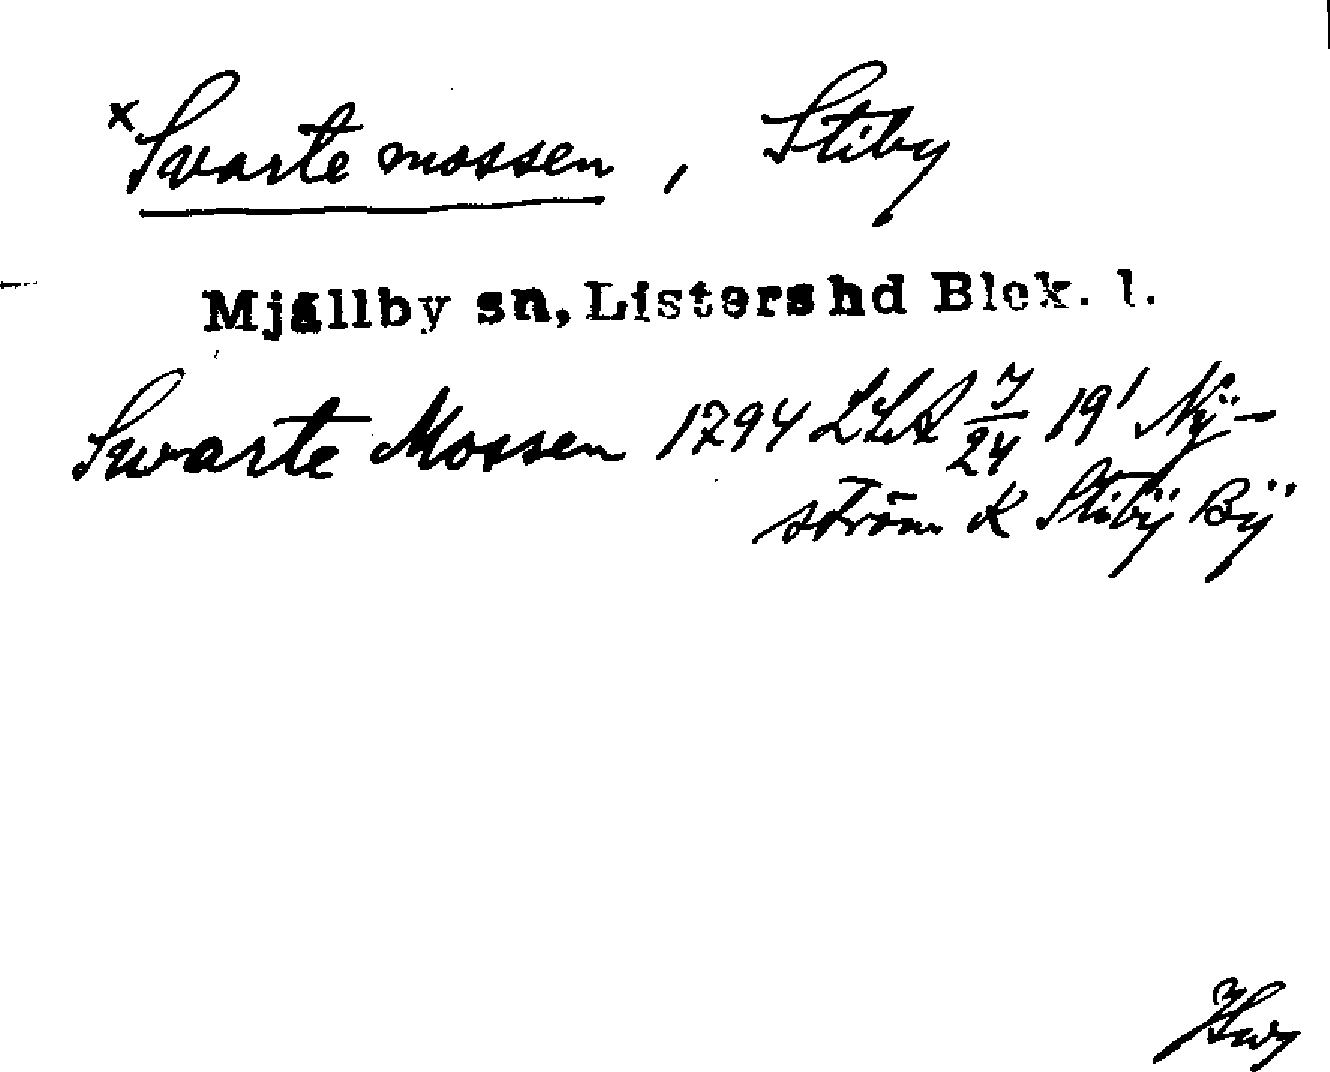 x Svarte mossen, Stiby
Mjällby sn, Listers hd Blek. l.
Swarte Mossen 1794 LSA 7/24 19' Nÿ-
ström K Stibÿ Bÿ